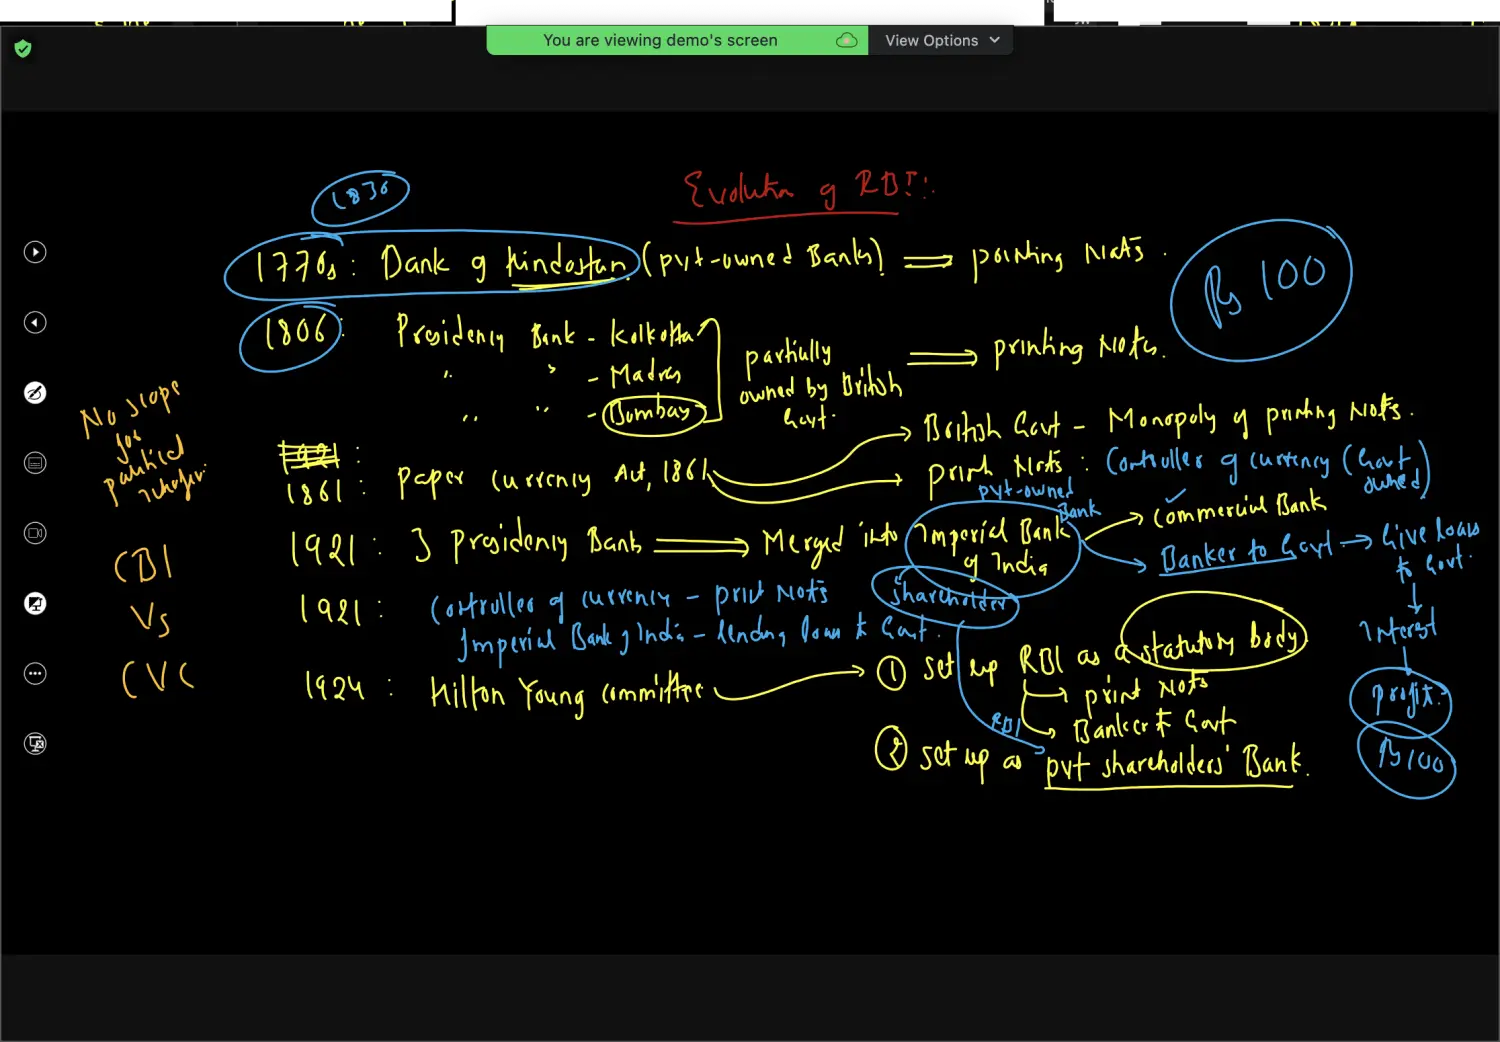 You are viewing demo's screen
View Options
Evolution of RBI:
1830
1770s: Bank of Hindostan (pvt-owned Banks) ⇒ printing Nots.
Rs 100
1806: Presidency Bank - Kolkotta
" " - Madras
" " - Bombay
partially
owned by British
Govt.
⇒ printing Nots.
No scope
for
political
1921:
1861: paper currency Act, 1861
→ British Govt - Monopoly of printing Nots.
→ print Nots: Controller of currency (Govt
owned)
pvt-owned
Bank
1921: 3 presidency Bank ⇒ Merged into Imperial Bank
of India
→ Commercial Bank
→ Banker to Govt → Give loans
to Govt.
Interest
profit.
Rs 100
CBI
Vs
CVC
shareholder
1921: Controller of currency - print Nots
Imperial Bank of India - lending loan to Govt.
1924: Hilton Young committee → ① set up RBI as a statutory body
→ print Nots
→ Banker to Govt
RBI
② set up as pvt shareholders' Bank.